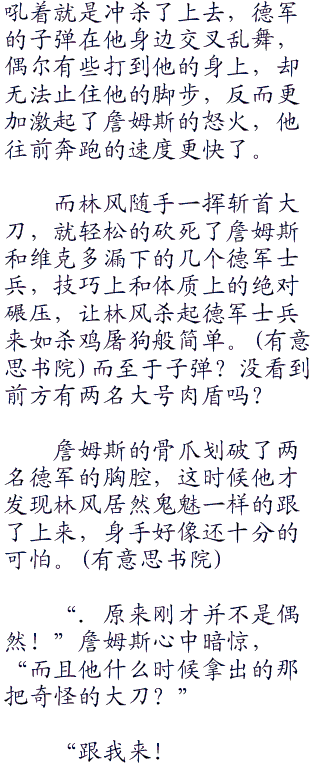 吼着就是冲杀了上去，德军
的子弹在他身边交叉乱舞，
偶尔有些打到他的身上，却
无法止住他的脚步，反而更
加激起了詹姆斯的怒火，他
往前奔跑的速度更快了。
而林风随手一挥斩首大
刀，就轻松的砍死了詹姆斯
和维克多漏下的几个德军士
兵，技巧上和体质上的绝对
碾压，让林风杀起德军士兵
来如杀鸡屠狗般简单。(有意
思书院)而至于子弹？没看到
前方有两名大号肉盾吗？
詹姆斯的骨爪划破了两
名德军的胸腔，这时候他才
发现林风居然鬼魅一样的跟
了上来，身手好像还十分的
可怕。(有意思书院)
“．原来刚才并不是偶
然！”詹姆斯心中暗惊，
“而且他什么时候拿出的那
把奇怪的大刀？”
“跟我来！